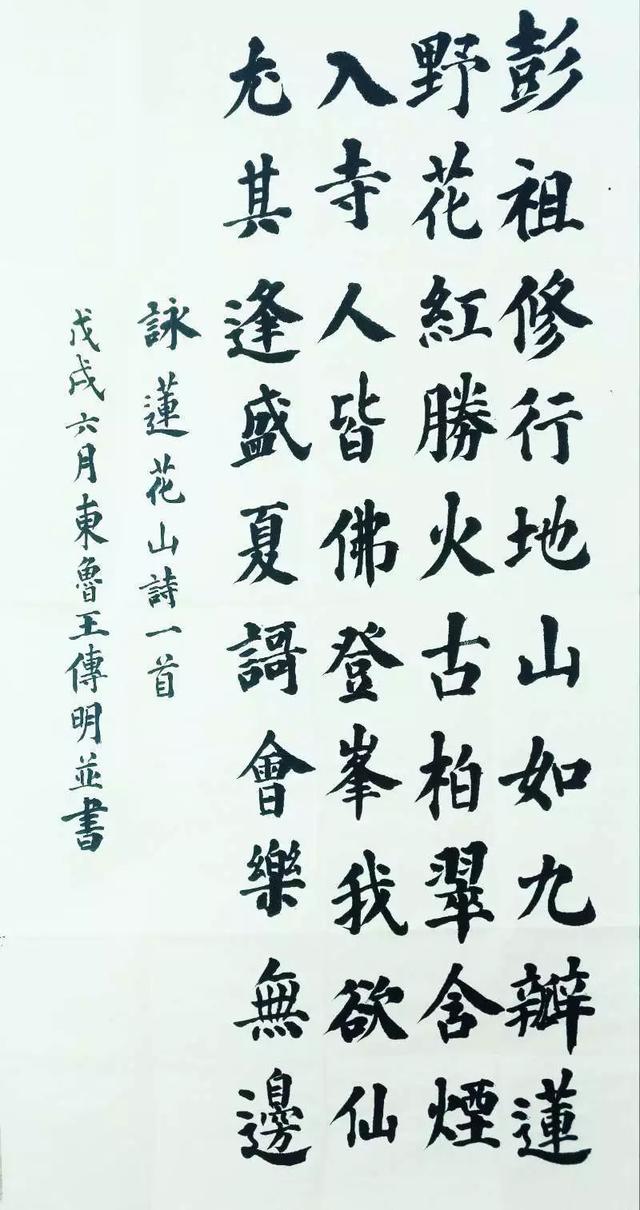 彭祖修行地山如九瓣蓮
野花紅勝火古柏翠含煙
入寺人皆佛登峯我欲仙
尤其逢盛夏謌會樂無邊
詠蓮花山詩一首
戊戌六月東魯王傳明並書